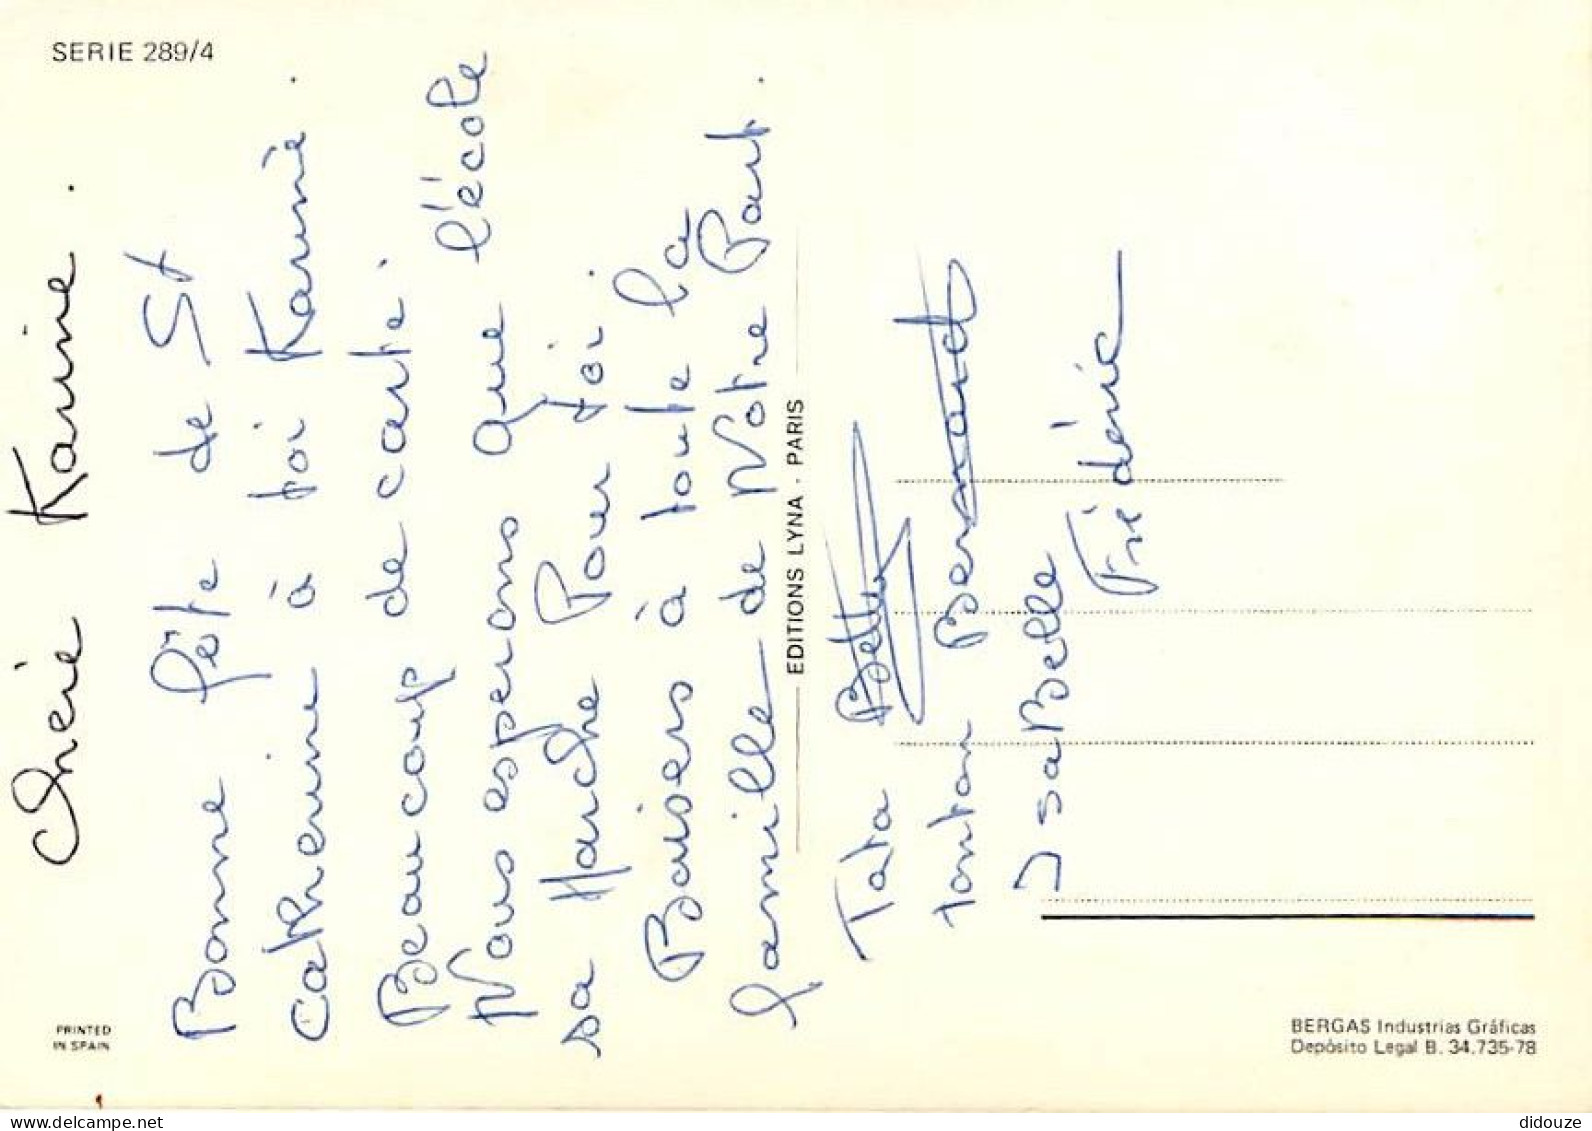 SERIE 289/4
Chérie Karine.
Bonne fête de St
catherine à toi Karine.
Beaucoup de carte.
Nous esperons que l'école
sa Marche Pour toi.
Baisers à toute la
famille de Notre Part.
Tata Betty
tonton Bernard
IsaBelle
Frédéric
EDITIONS LYNA - PARIS
PRINTED
IN SPAIN
BERGAS Industrias Gráficas
Depósito Legal B. 34.735-78
delcampe.net
didouze